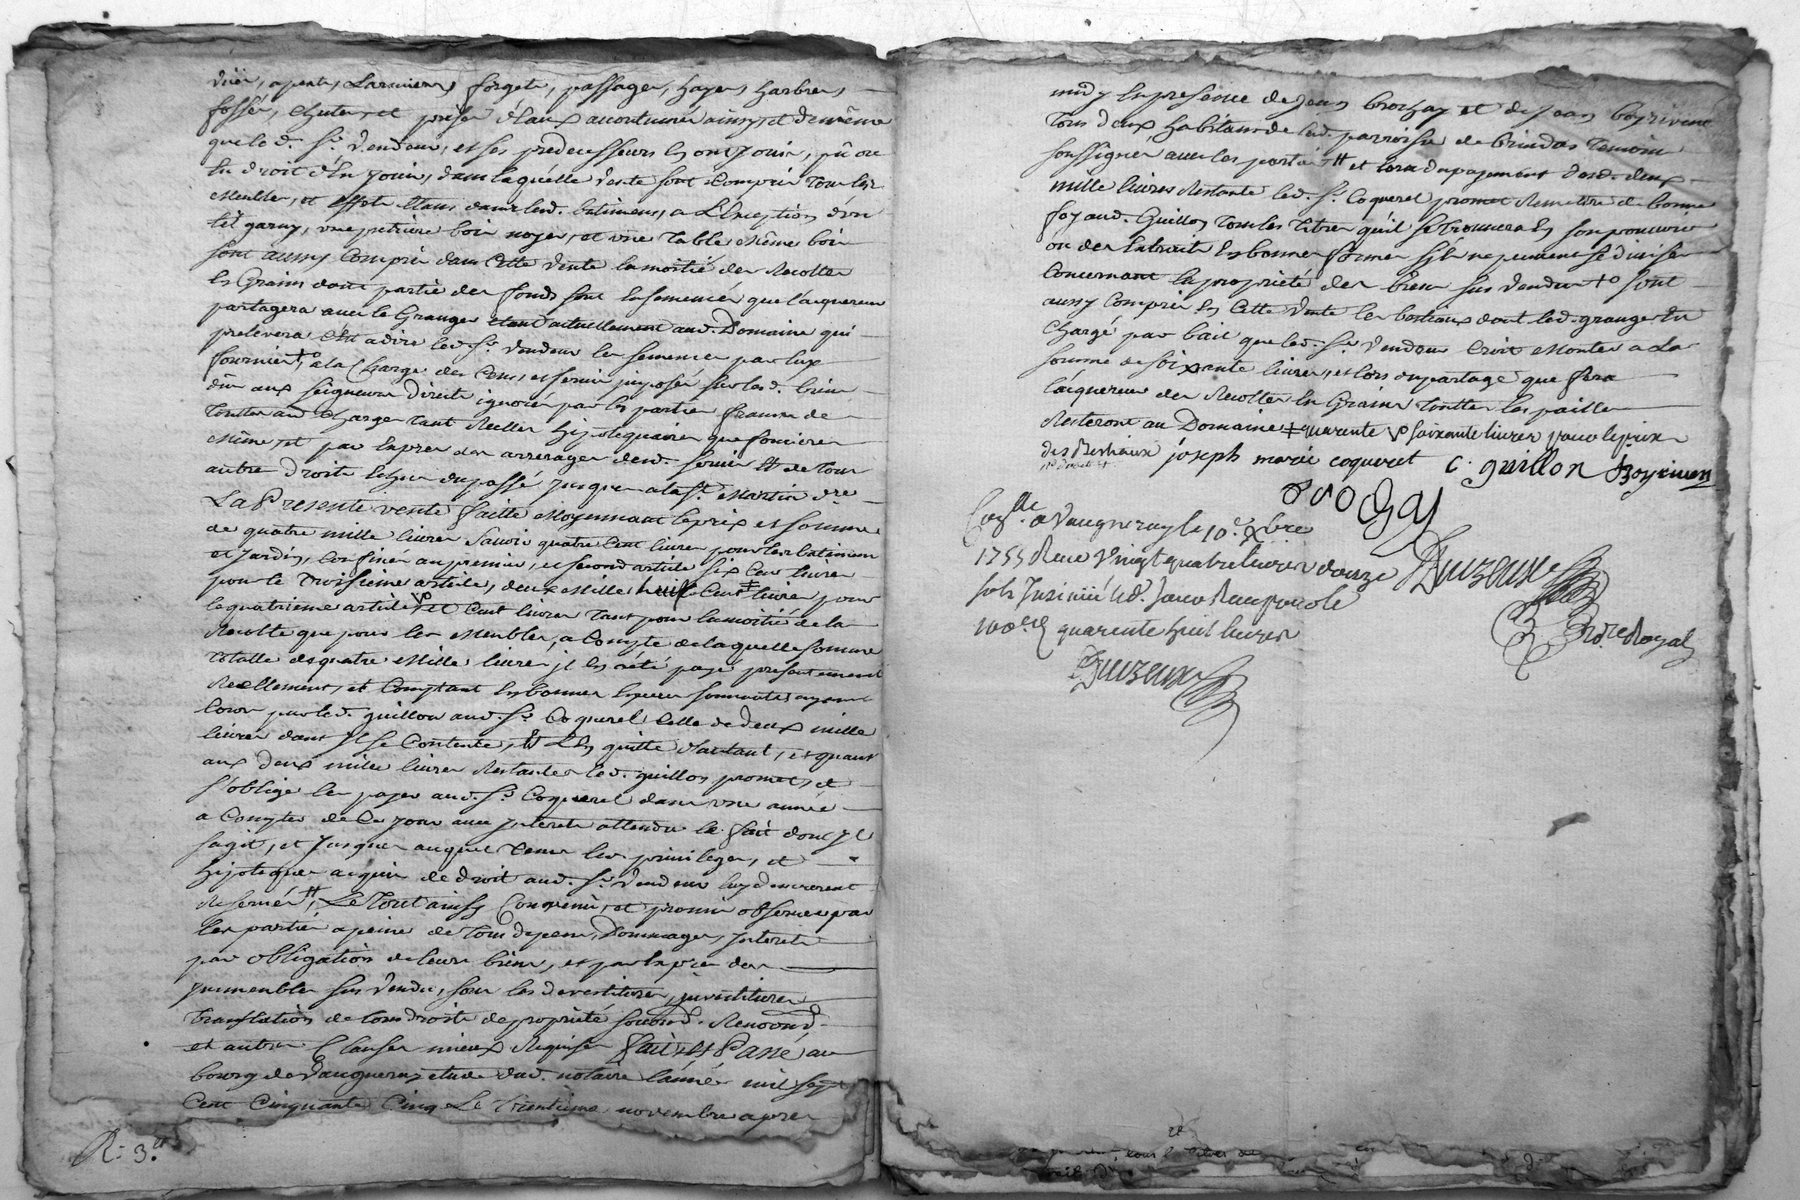 vües, apents, Larmiers, forgets, passages, hayes, harbres,
fossés, chutes, et prises d'Eaux accoutumés ainsy, et de même
que led. Sr. Vendeur, et ses predecesseurs En ont Joui, pû ou
du droit d'En jouir, dans laquelle vente sont Compris tous les
Meubles, et effets Etans dans lesd. batimens, a L'Exception d'un
lit garny, une petriere bois noyer, et une Table même bois
sont aussy Compris dans Cette vente la moitié des Recoltes
En Grains dont partie des fonds sont Ensemencés que l'acquereur
partagera avec le Granger Etant actuellement aud. Domaine qui
prelevera C'est a dire led. Sr. Vendeur les semences par luy
fournies, a la Charge des Cens, et servis imposés sur lesd. biens
dûs aux seigneurs Directs, ignorés par les parties franc de
Toutes aud. Charges tant Reelles hipotequaires que foncieres
même, et par Exprès des arrerages desd. servis et de tous
autres droits Echus du passé jusques a la St. Martin dre
La Presente vente faitte Moyennant le prix et somme
de quatre mille livres Savoir quatre Cent livres pour les batimens
et Jardin, Confinés au premier, et second article six Cent livres
pour le troisieme article, deux Mille huit Cent livres pour
le quatrieme article et Cent livres Tant pour la moitié de la
Recolte que pour les Meubles, a Compte de laquelle somme
totalle de quatre Mille livres il En a été payé presentement
Reellement, et Comptant En bonnes Especes sonnantes ayant
Cours par led. guillon aud. Sr. Coquerel Celle de deux mille
livres dont Il se Contente, et L'En quitte d'autant, et quant
aux deux mille livres Restantes led. guillon promet, et
s'oblige les payer aud. Sr. Coquerel dans une année
a Compter de Ce jour avec Interets attendu le fait dont Il
s'agit, et Jusques auquel Terme les privileges, et
hipoteques acquis de droit aud. Sr. Vendeur luy demeurent
Reservés, Le Tout ainsy Convenu, et promis observer par
les parties a peine de Tous depens, Dommages, Interets
par obligation de leurs biens, et par Exprès des
Immeubles sus Vendus, sous les devestitures, investitures
Translation de tous droits de propriété soumd. Renoond.
et autres Clauses mieux Requises fait et Passé au
bourg de Vaugneray etude dud. notaire l'année mil sept
Cent Cinquante Cinq Le Trentieme novembre apres
R: 3.et
midy En presence de Jean brochay et de Jean boyrivent
tous deux habitans de lad. parroisse de brindas Temoins
soussignés avec les parties et lors du payement desd. deux
mille livres Restante led. Sr. Coquerel promet Remettre de bonne
foy aud. Guillon Tous les titres qu'il se trouvera En son pouvoir
ou des Extraits En bonnes formes s'ils ne peuvent se diviser
Concernant la propriété des biens sus Vendus sont
aussy Compris En Cette Vente les bestiaux dont led. granger Est
Chargé par bail que led. Sr. Vendeur Croit Monter a la
somme de soixante livres, et lors du partage que fera
l'acquereur des Recoltes En Grains toutes les pailles
Resteront au Domaine quarente soixante livres pour le prix
des Bestiaux joseph marie coquerel C. guillon Boyriven
brochay
Conlle. a Vaugneray le 10e. Xbre
1755 Receu Vingt quatre livres douze
sols Insinué led. Jour
quarente huit livres
Duzeaux
Duzeaux
nore Royal